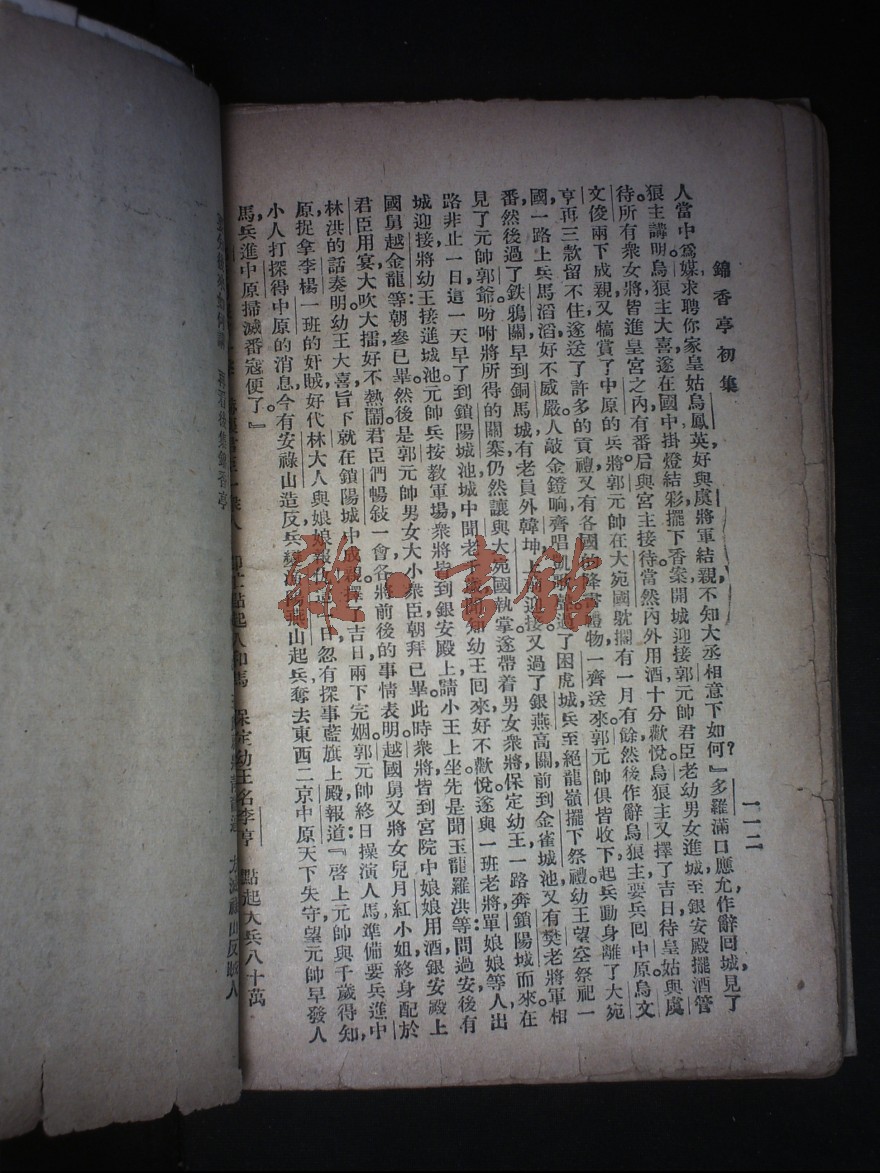 錦香亭初集
一一二
人當中爲媒求聘你家皇姑烏鳳英好與虞將軍結親不知大丞相意下如何?』多羅滿口應允作辭回城見了
狼主講明烏狼主大喜遂在國中掛燈結彩擺下香案開城迎接郭元帥君臣老幼男女進城至銀安殿擺酒管
待所有衆女將皆進皇宮之內有番后與宮主接待當然內外用酒十分歡悅烏狼主又擇了吉日待皇姑與虞
文俊兩下成親又犒賞了中原的兵將郭元帥在大宛國躭擱有一月有餘然後作辭烏狼主要兵回中原烏文
亨再三款留不住遂送了許多的貢禮又有各國降書禮物一齊送來郭元帥俱皆收下起兵動身離了大宛
國一路上兵馬滔滔好不威嚴人敲金鐙响齊唱凱歌過了困虎城兵至絕龍嶺擺下祭禮幼王望空祭祀一
番然後過了鉄鴉關早到銅馬城有老員外韓坤上前迎接又過了銀燕高關前到金雀城池又有樊老將軍相
見了元帥郭爺吩咐將所得的關寨仍然讓與大宛國執掌遂帶着男女衆將保定幼王一路奔鎖陽城而來在
路非止一日這一天早了到鎖陽城池城中聞老知幼王回來好不歡悅遂與一班老將單娘娘等人出
城迎接將幼王接進城池元帥兵按教軍場衆將皆到銀安殿上請小王上坐先是聞玉龍羅洪等問過安後有
國舅越金龍等朝參已畢然後是郭元帥男女大小衆臣朝拜已畢此時衆將皆到宮院中娘娘用酒銀安殿上
君臣用宴大吹大擂好不熱鬧君臣們暢敍一會各將前後的事情表明越國舅又將女兒月紅小姐終身配於
林洪的話奏明幼王大喜旨下就在鎖陽城中成親擇了吉日兩下完姻郭元帥終日操演人馬準備要兵進中
原捉拿李楊一班的奸賊好代林大人與娘娘報一日忽有探事藍旗上殿報道:『啓上元帥與千歲得知,
小人打探得中原的消息今有安祿山造反兵燕山起兵奪去東西二京中原天下失守望元帥早發人
馬,兵進中原掃滅番寇便了。』
點起人和馬 保定幼王名李亨 點起大兵八十萬
再 後集錦香亭